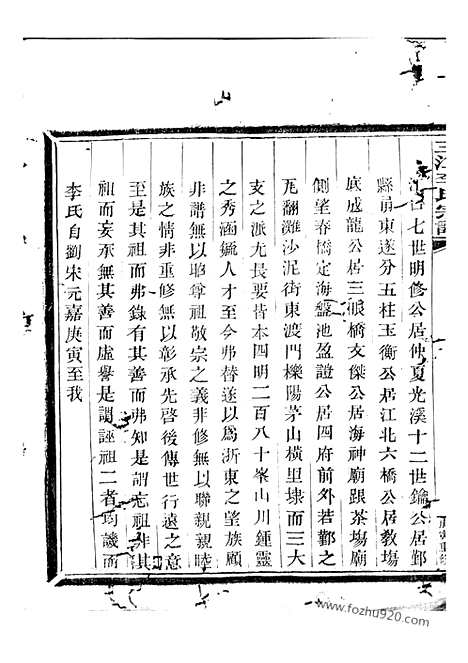 三江李氏宗譜
七世明修公居仲夏光溪十二世鑰公居鄞
縣前東遂分五柱玉衡公居江北六橋公居教場
底成龍公居三眼橋文傑公居海神廟跟茶場廟
側望春橋定海盤池盈證公居四府前外若鄞之
瓦翻灘沙泥街東渡門櫟陽茅山橫里埭而三大
支之派尤長要皆本四明二百八十峯山川鍾靈
之秀涵毓人才至今弗替遂以爲浙東之望族顧
非譜無以昭尊祖敬宗之義非修無以聯親親睦
族之情非重修無以彰承先啓後傳世行遠之意
至是其祖而弗錄有其善而弗知是謂忘祖非其
祖而妄承無其善而虛譽是謂誣祖二者均譏而
李氏自劉宋元嘉庚寅至我
www.fozhu920.com